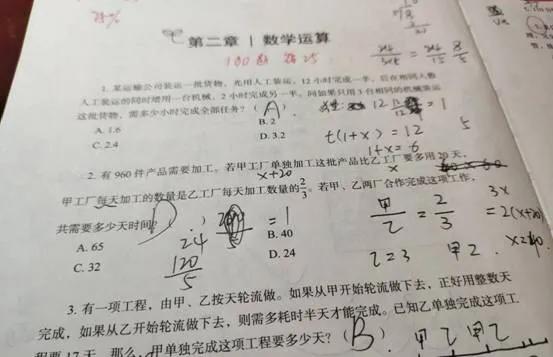 75%
第二章 | 数学运算
100题 错25
1. 某运输公司装运一批货物，先用人工装运，12小时完成一半，后在相同人数
人工装运的同时增用一台机械，2小时完成另一半。问如果只用3台相同的机械装运
这批货物，需多少小时完成全部任务？（A）
A. 1.6 B. 2
C. 2.4 D. 3.2
t(1+x) = 12 5
1+x = 6
2. 有960件产品需要加工。若甲工厂单独加工这批产品比乙工厂要多用20天，
x+20 x
甲工厂每天加工的数量是乙工厂每天加工数量的2/3。若甲、乙两厂合作完成这项工作，
共需要多少天时间？（D）
A. 65 B. 40
C. 32 D. 24
= 1
24
120/5
甲/乙 = 2/3
3x
= 2(x+20)
乙=3 甲2 x=40
3. 有一项工程，由甲、乙按天轮流做。如果从甲开始轮流做下去，正好用整数天
完成，如果从乙开始轮流做下去，则需多耗时半天才能完成。已知乙单独完成这项工
程要17天，那么，甲单独完成这项工程要多少天？（B）
甲乙 甲乙